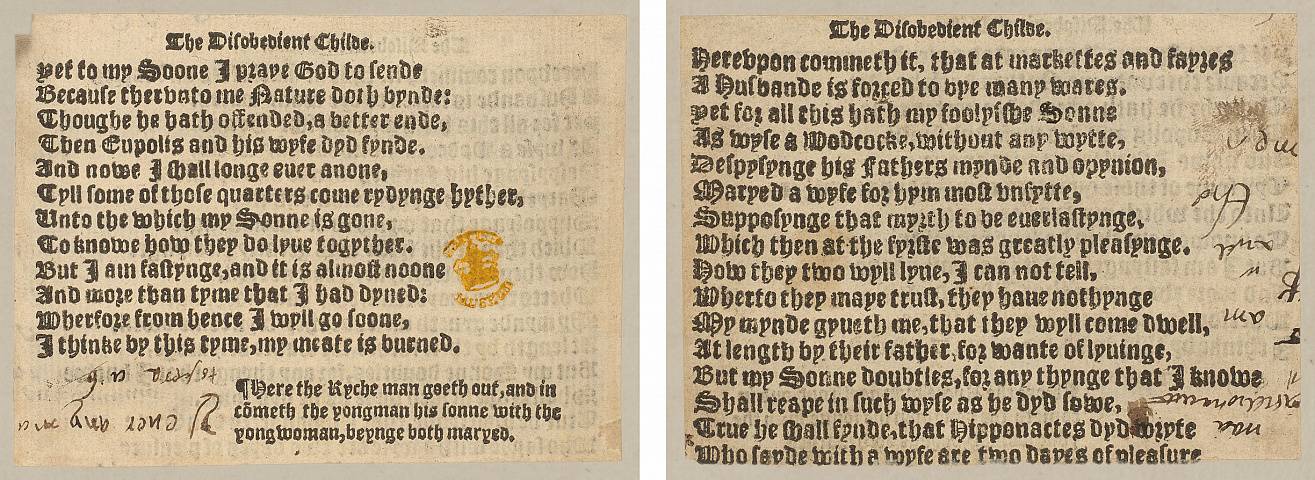 The Disobedient Childe.
yet to my Soone I praye God to sende
Because thervnto me Nature doth bynde:
Thoughe he hath offended, a better ende,
Then Eupolis and his wyfe dyd fynde.
And nowe I shall longe euer anone,
Tyll some of those quarters come rydynge hyther,
Unto the which my Sonne is gone,
To knowe how they do lyue togyther.
But I am fastynge, and it is almost noone
And more than tyme that I had dyned:
Wherfore from hence I wyll go soone,
I thinke by this tyme, my meate is burned.
¶Here the Ryche man goeth out, and in
cōmeth the yongman his sonne with the
yongwoman, beynge both maryed.
The Disobedient Childe.
Herevpon commeth it, that at markettes and fayres
A Husbande is forced to bye many wares.
yet for all this hath my foolyishe Sonne
As wyse a Wodcocke, without any wytte,
Despysynge his Fathers mynde and opynion,
Maryed a wyfe for hym most vnfytte,
Supposynge that myrth to be euerlastynge,
Which then at the fyrste was greatly pleasynge.
How they two wyll lyue, I can not tell,
Wherto they maye trust, they haue nothynge
My mynde gyueth me, that they wyll come dwell,
At length by their father, for wante of lyuinge,
But my Sonne doubtles, for any thynge that I knowe
Shall reape in such wyse as he dyd sowe,
True he shall fynde, that Hipponactes dyd wryte
Who sayde with a wyfe are two dayes of pleasure
and
am